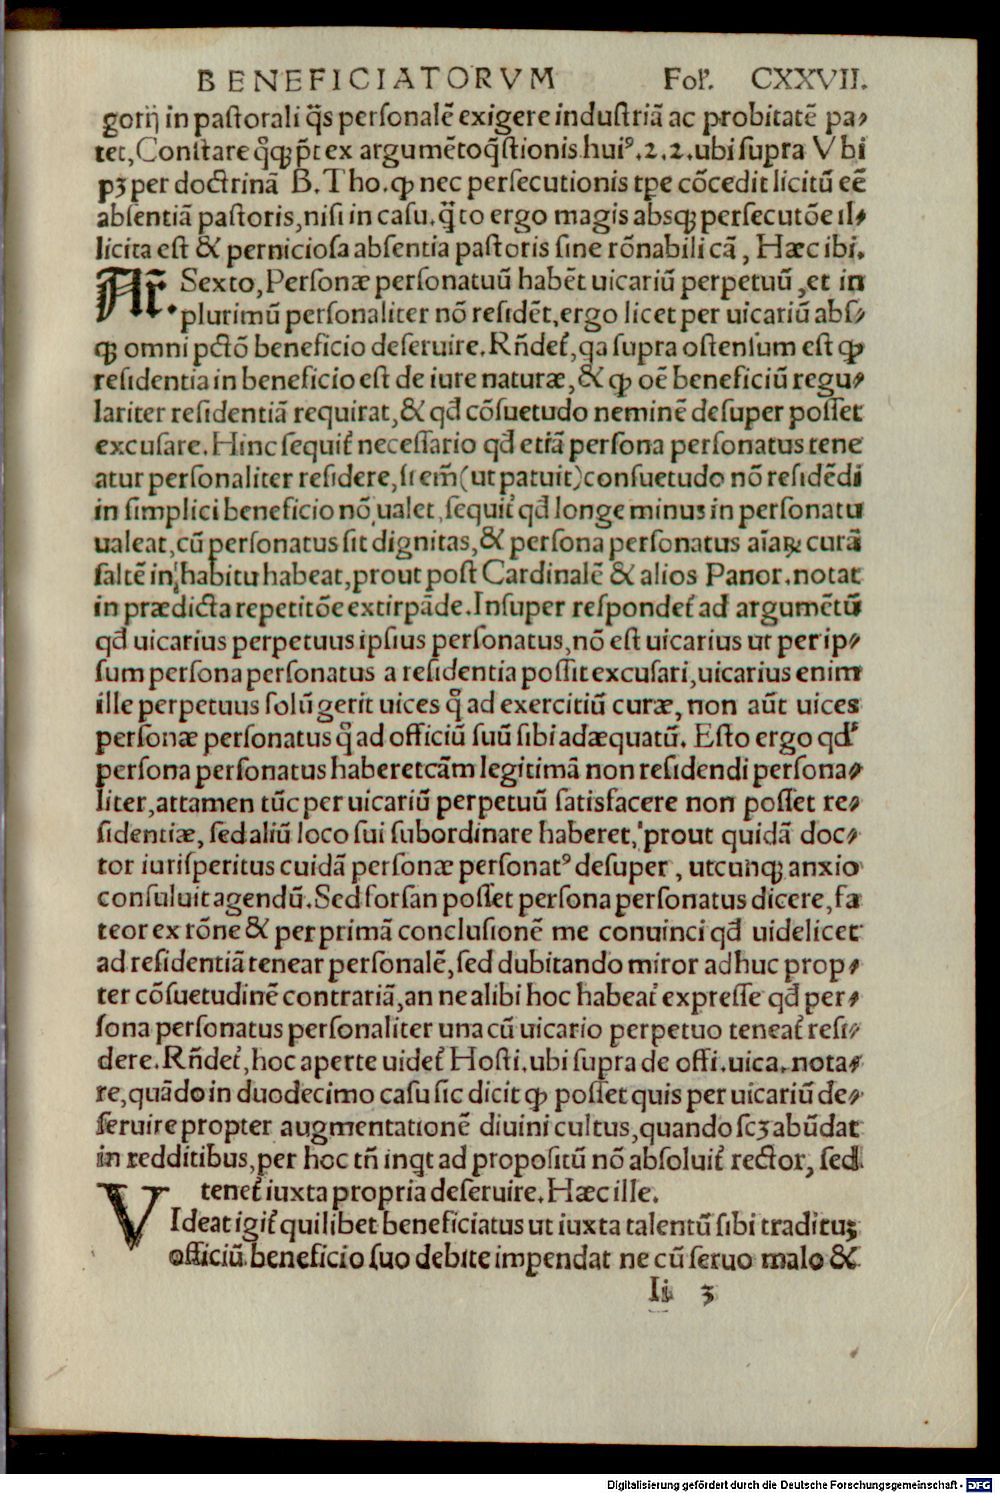 BENEFICIATORVM Fol'. CXXVII.
gorij in pastorali q̃s personalẽ exigere industriã ac probitatẽ pa⸗
tet, Constare q̃ꝗꝫ pt̃ ex argumẽto q̃stionis huiꝰ.2.2. ubi supra Vbi
pꝫ per doctrinã B. Tho. ꝙ nec persecutionis tpe cõcedit licitũ eẽ
absentiã pastoris, nisi in casu. q̃to ergo magis absqꝫ persecutõe il⸗
licita est & perniciosa absentia pastoris sine rõnabili cã, Hæc ibi.
Ar̃. Sexto, Personæ personatuũ habẽt uicariũ perpetuũ, et in
plurimũ personaliter nõ residẽt, ergo licet per uicariũ abs⸗
qꝫ omni pctõ beneficio deseruire. Rñdet᷑, qa supra ostensum est ꝙ
residentia in beneficio est de iure naturæ, & ꝙ oẽ beneficiũ regu⸗
lariter residentiã requirat, & qđ cõsuetudo neminẽ desuper posset
excusare. Hinc sequit᷑ necessario qđ etiã persona personatus tene
atur personaliter residere, si em̃ (ut patuit) consuetudo nõ residẽdi
in simplici beneficio nõ ualet, sequit᷑ qđ longe minus in personatu
ualeat, cũ personatus sit dignitas, & persona personatus aĩaꝝ curã
saltẽ in habitu habeat, prout post Cardinalẽ & alios Panor. notat
in prædicta repetitõe extirpãde. Insuper respondet᷑ ad argumẽtũ
qđ uicarius perpetuus ipsius personatus, nõ est uicarius ut per ip⸗
sum persona personatus a residentia possit excusari, uicarius enim
ille perpetuus solũ gerit uices q̃ ad exercitiũ curæ, non aũt uices
personæ personatus q̃ ad officiũ suũ sibi adæquatũ. Esto ergo qđ
persona personatus haberet cãm legitimã non residendi persona⸗
liter, attamen tũc per uicariũ perpetuũ satisfacere non posset re⸗
sidentiæ, sed aliũ loco sui subordinare haberet, prout quidã doc⸗
tor iurisperitus cuidã personæ personatꝰ desuper, utcunqꝫ anxio
consuluit agendũ. Sed forsan posset persona personatus dicere, fa
teor ex rõne & per primã conclusionẽ me conuinci qđ uidelicet
ad residentiã tenear personalẽ, sed dubitando miror adhuc prop⸗
ter cõsuetudinẽ contrariã, an ne alibi hoc habeat᷑ expresse qđ per⸗
sona personatus personaliter una cũ uicario perpetuo teneat᷑ resi⸗
dere. Rñdet᷑, hoc aperte uidet᷑ Hosti. ubi supra de offi. uica. nota⸗
re, quãdo in duodecimo casu sic dicit ꝙ posset quis per uicariũ de⸗
seruire propter augmentationẽ diuini cultus, quando scꝫ abũdat
in redditibus, per hoc tñ inqt ad propositũ nõ absoluit᷑ rector, sed
tenet᷑ iuxta propria deseruire. Hæc ille.
VIdeat igit᷑ quilibet beneficiatus ut iuxta talentũ sibi traditũ
officiũ beneficio suo debite impendat ne cũ seruo malo &
Ii 3
Digitalisierung gefördert durch die Deutsche Forschungsgemeinschaft - DFG